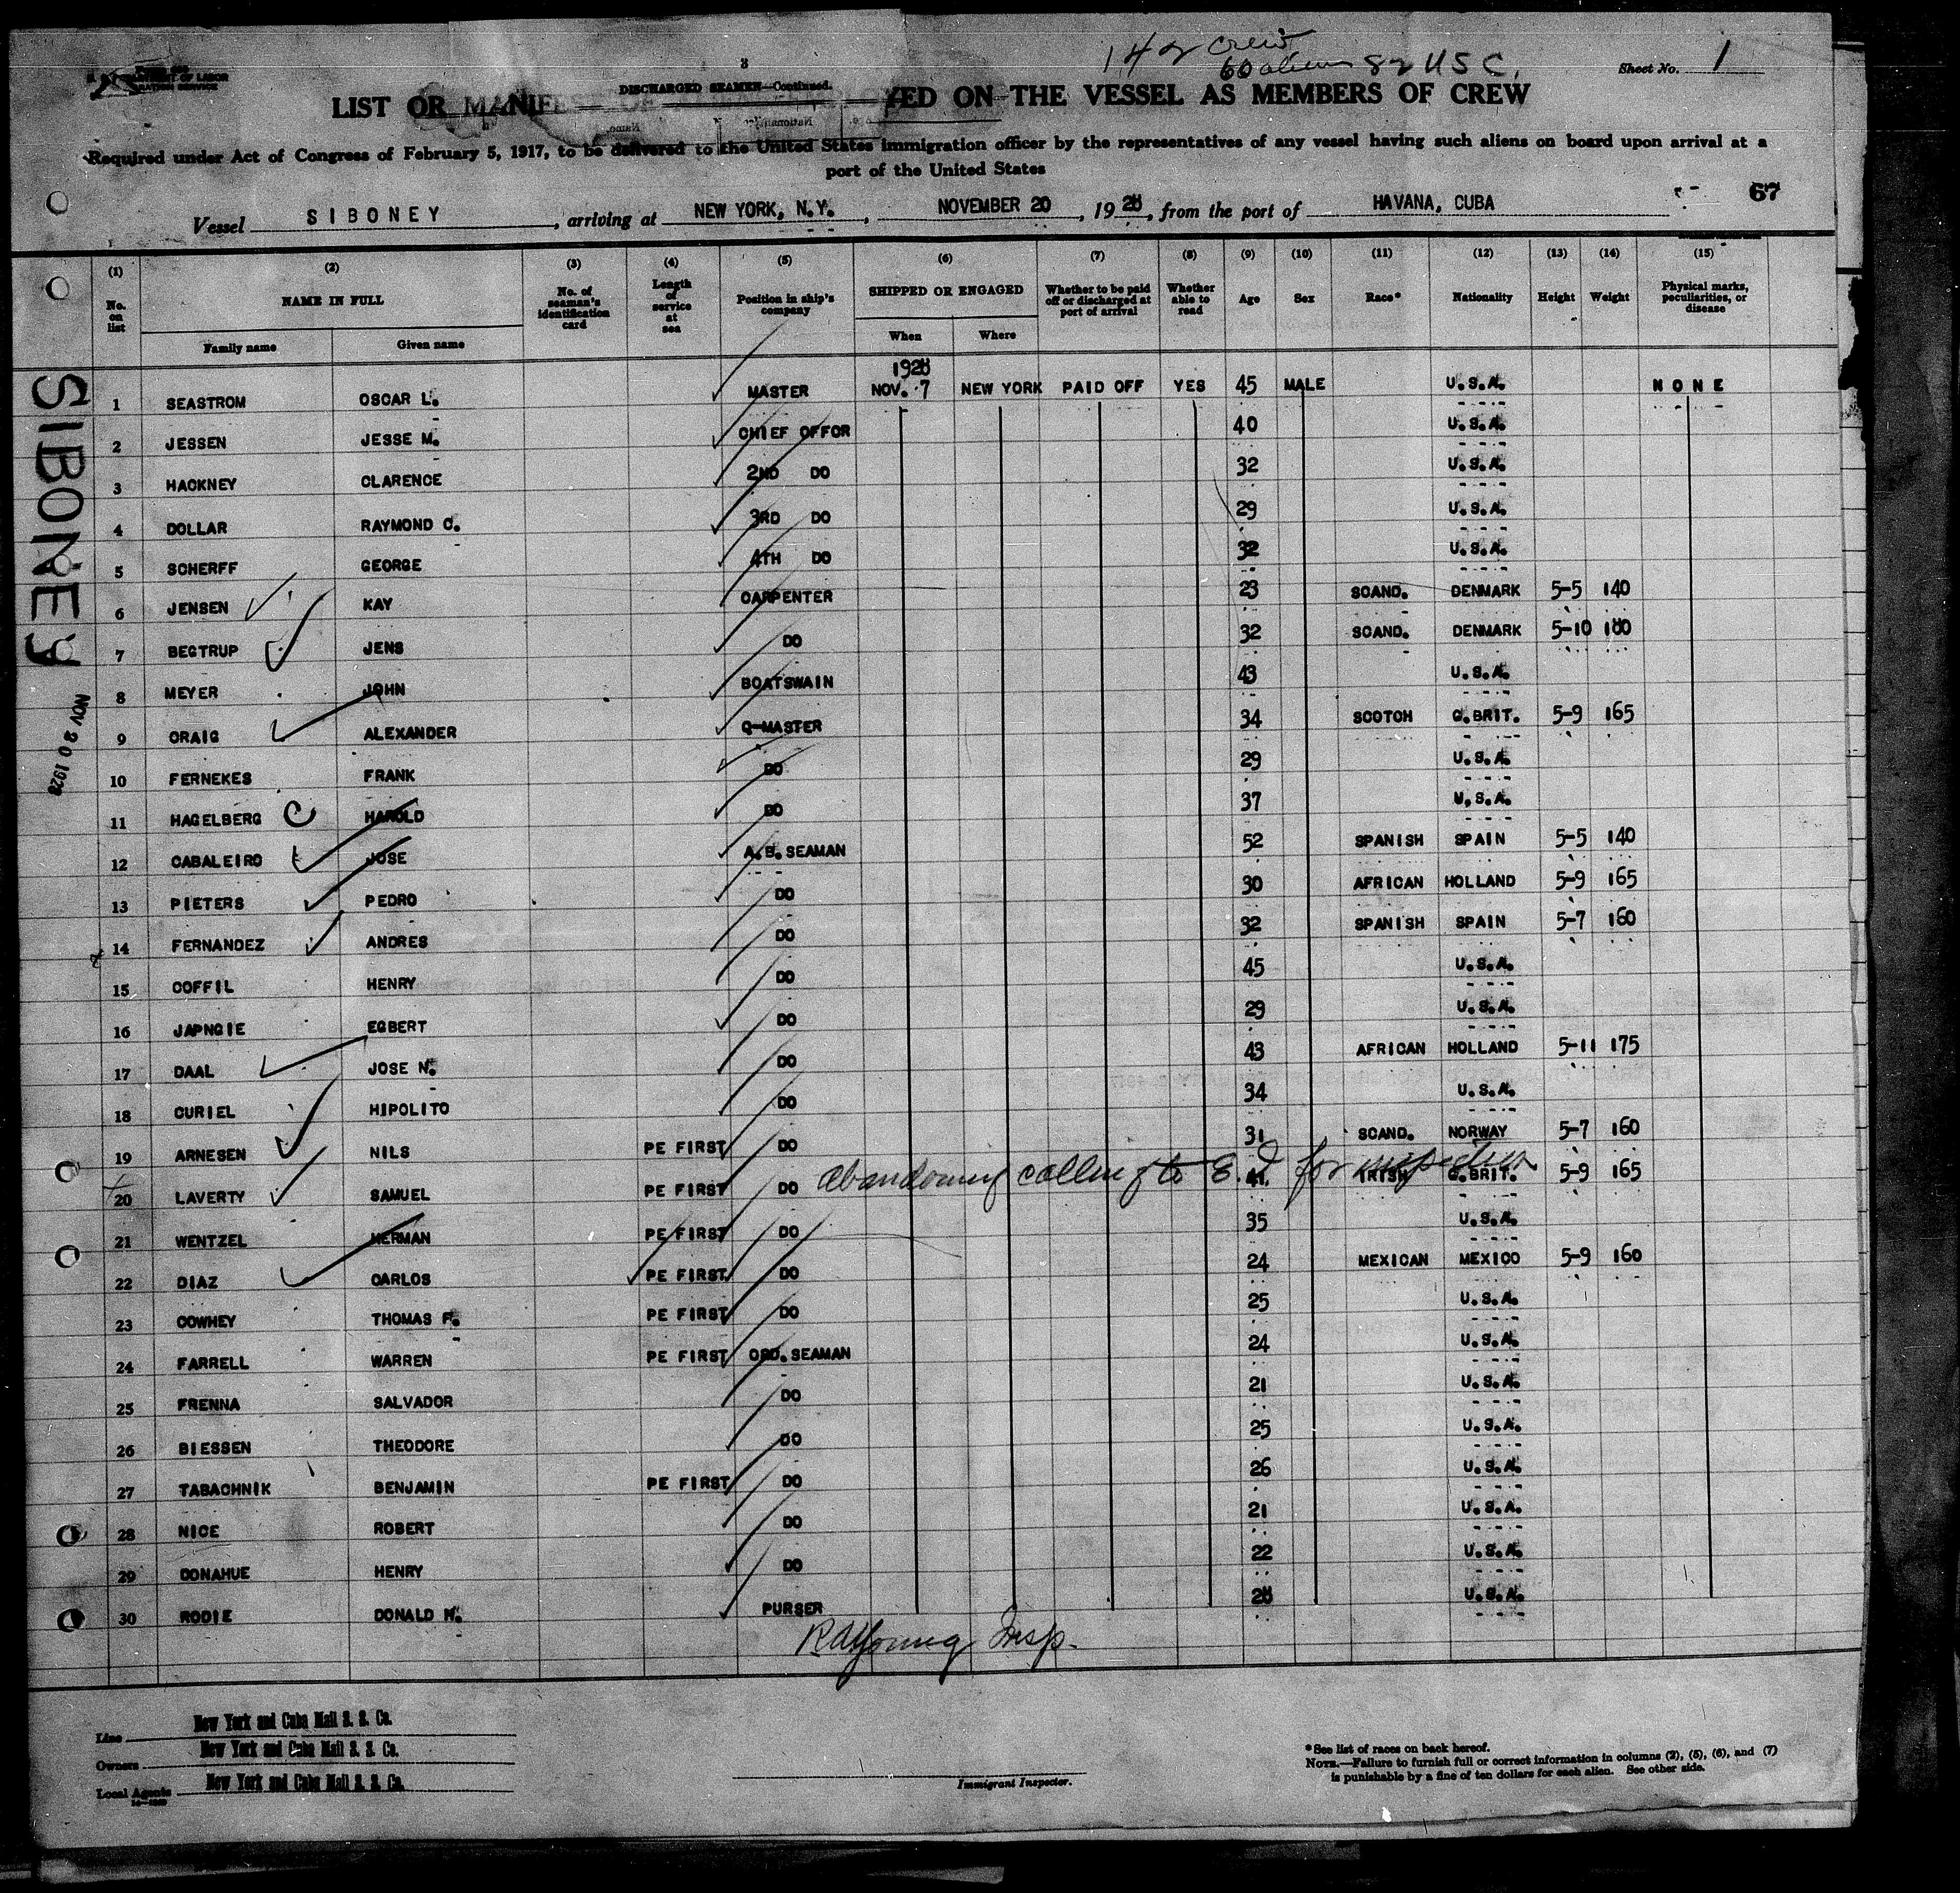 142 crew
60 aliens 82 USC.
Sheet No. 1
3
DISCHARGED SEAMEN—Continued.
LIST OR MANIFE YED ON THE VESSEL AS MEMBERS OF CREW
Required under Act of Congress of February 5, 1917, to be delivered to the United States immigration officer by the representatives of any vessel having such aliens on board upon arrival at a
port of the United States
67
Vessel SIBONEY, arriving at NEW YORK, N.Y., NOVEMBER 20, 1928, from the port of HAVANA, CUBA
(1) (2) (3) (4) (5) (6) (7) (8) (9) (10) (11) (12) (13) (14) (15)
No. on list NAME IN FULL No. of seaman's identification card Length of service at sea Position in ship's company SHIPPED OR ENGAGED Whether to be paid off or discharged at port of arrival Whether able to read Age Sex Race* Nationality Height Weight Physical marks, peculiarities, or disease
Family name Given name When Where
1928
1 SEASTROM OSCAR L. MASTER NOV. 7 NEW YORK PAID OFF YES 45 MALE U.S.A. NONE
2 JESSEN JESSE M. CHIEF OFFCR 40 U.S.A.
3 HACKNEY CLARENCE 2ND DO 32 U.S.A.
4 DOLLAR RAYMOND C. 3RD DO 29 U.S.A.
5 SCHERFF GEORGE 4TH DO 32 U.S.A.
6 JENSEN KAY CARPENTER 23 SCAND. DENMARK 5-5 140
7 BEGTRUP JENS DO 32 SCAND. DENMARK 5-10 180
8 MEYER JOHN BOATSWAIN 43 U.S.A.
9 CRAIG ALEXANDER Q-MASTER 34 SCOTCH G.BRIT. 5-9 165
10 FERNEKES FRANK DO 29 U.S.A.
11 HAGELBERG C HAROLD DO 37 U.S.A.
12 CABALEIRO JOSE A.B. SEAMAN 52 SPANISH SPAIN 5-5 140
13 PIETERS PEDRO DO 30 AFRICAN HOLLAND 5-9 165
14 FERNANDEZ ANDRES DO 32 SPANISH SPAIN 5-7 160
15 COFFIL HENRY DO 45 U.S.A.
16 JAPNGIE EGBERT DO 29 U.S.A.
17 DAAL JOSE N. DO 43 AFRICAN HOLLAND 5-11 175
18 CURIEL HIPOLITO DO 34 U.S.A.
19 ARNESEN NILS PE FIRST DO 31 SCAND. NORWAY 5-7 160
20 LAVERTY SAMUEL PE FIRST DO abandoning to E.I. for inspection 41 IRISH G.BRIT. 5-9 165
21 WENTZEL HERMAN PE FIRST DO 35 U.S.A.
22 DIAZ CARLOS PE FIRST DO 24 MEXICAN MEXICO 5-9 160
23 COWHEY THOMAS F. PE FIRST DO 25 U.S.A.
24 FARRELL WARREN PE FIRST ORD. SEAMAN 24 U.S.A.
25 FRENNA SALVADOR DO 21 U.S.A.
26 BIESSEN THEODORE DO 25 U.S.A.
27 TABACHNIK BENJAMIN PE FIRST DO 26 U.S.A.
28 NICE ROBERT DO 21 U.S.A.
29 DONAHUE HENRY DO 22 U.S.A.
30 RODIE DONALD H. PURSER 28 U.S.A.
Young Insp.
SIBONEY
NOV 20 1928
Line New York and Cuba Mail S. S. Co.
Owners New York and Cuba Mail S. S. Co.
Local Agents New York and Cuba Mail S. S. Co.
Immigrant Inspector.
*See list of races on back hereof.
NOTE.—Failure to furnish full or correct information in columns (2), (5), (6), and (7)
is punishable by a fine of ten dollars for each alien. See other side.